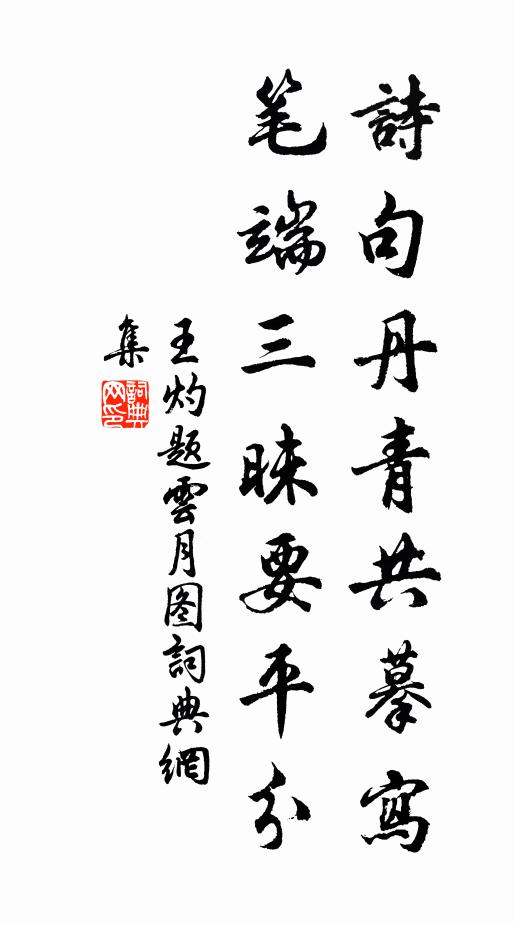 詩句丹青共摹寫
笔端三昧要平分
王灼题雲月图詞典網
集
詞典
网印